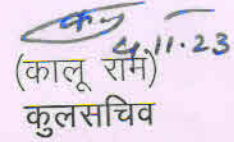 4.11.23
(कालू राम)
कुलसचिव